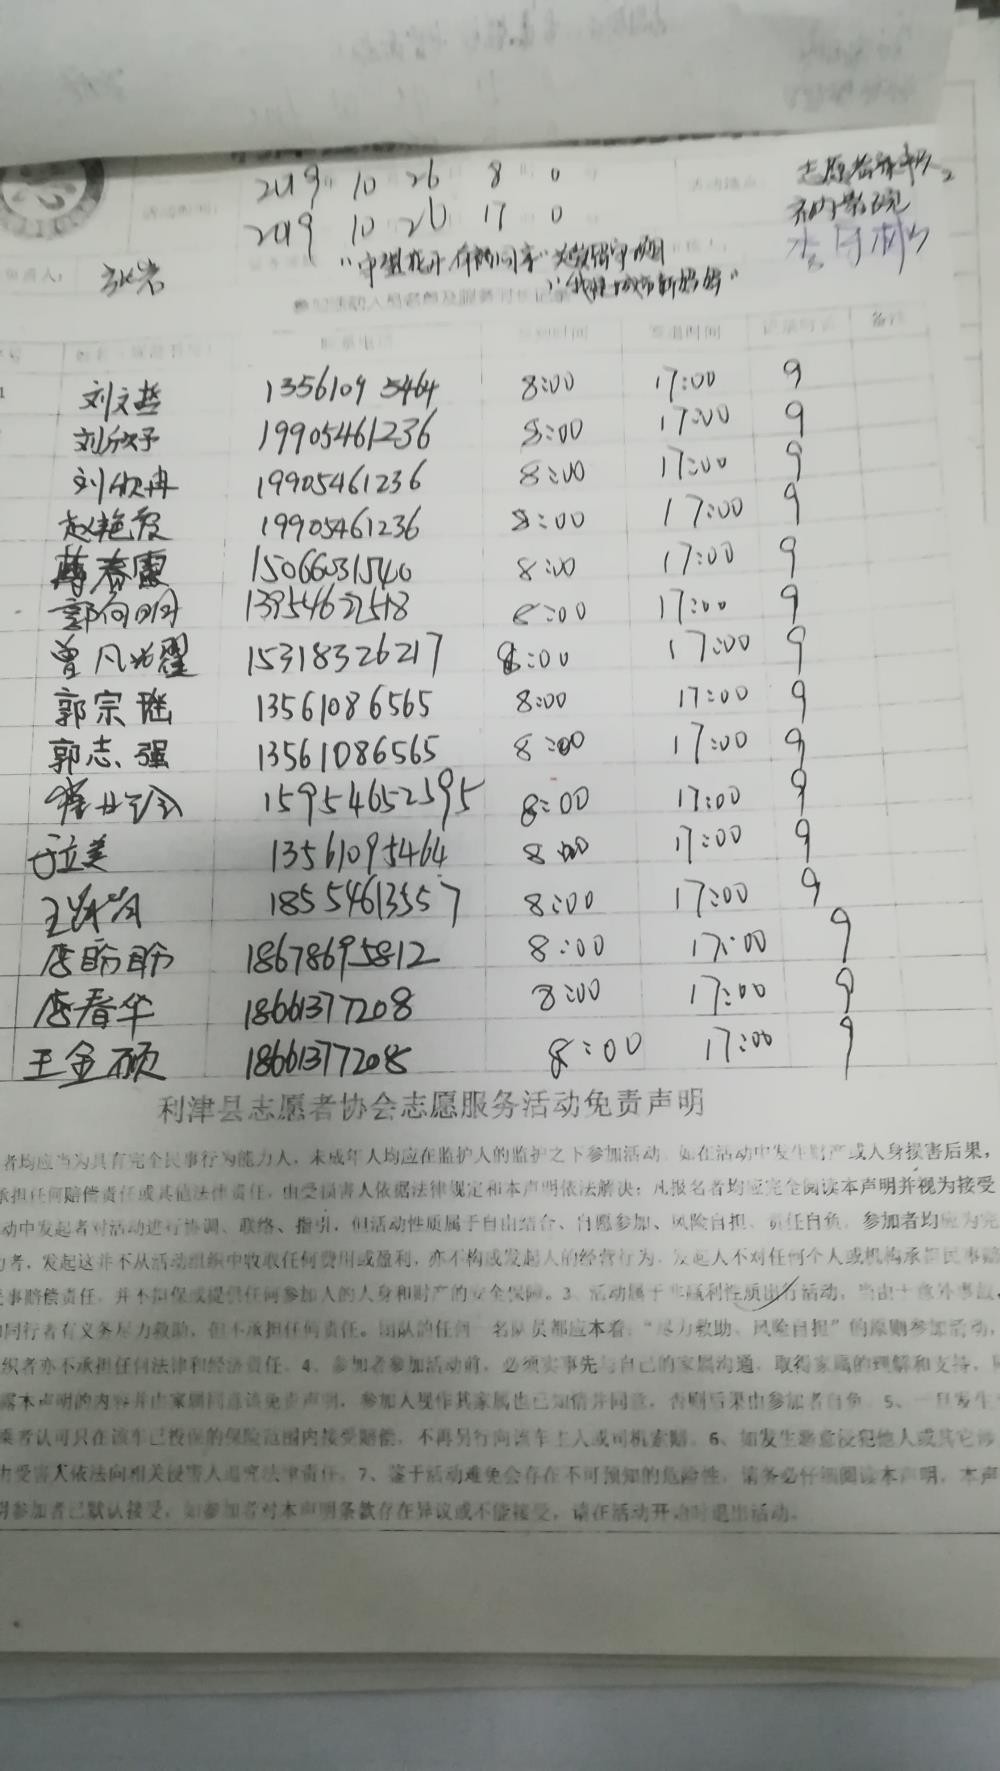 2019 10 26 8 0
2019 10 26 17 0
刘文哲 1356109 5464 8:00 17:00 9
刘欣予 19905461236 8:00 17:00 9
刘欣冉 19905461236 8:00 17:00 9
赵艳霞 19905461236 8:00 17:00 9
春雷 15066031540 8:00 17:00 9
郭向明 13954621518 8:00 17:00 9
曾凡 15318326217 8:00 17:00 9
郭宗瑶 13561086565 8:00 17:00 9
郭志强 13561086565 8:00 17:00 9
15954652595 8:00 17:00 9
于立美 13561095464 8:00 17:00 9
王 18554613557 8:00 17:00 9
盼盼 18678695812 8:00 17:00 9
春华 18661377208 8:00 17:00 9
王金硕 18661377208 8:00 17:00 9
利津县志愿者协会志愿服务活动免责声明
者均应当为具有完全民事行为能力人，未成年人均应在监护人的监护之下参加活动，如在活动中发生财产或人身损害后果，
承担任何赔偿责任或其他法律责任，由受损害人依据法律规定和本声明依法解决；凡报名者均应完全阅读本声明并视为接受
动中发起者对活动进行协调、联络、指引，但活动性质属于自由结合、自愿参加、风险自担、责任自负，参加者均应为完
者，发起这并不从活动组织中收取任何费用或盈利，亦不构成发起人的经营行为，发起人不对任何个人或机构承担民事赔
事赔偿责任，并不担保或提供任何参加人的人身和财产的安全保障。3、活动属于非赢利性质出行活动，当由于意外事故
同行者有义务尽力救助，但不承担任何责任。团队的任何一名队员都应本着：“尽力救助、风险自担”的原则参加活动，
织者亦不承担任何法律和经济责任。4、参加者参加活动前，必须实事先与自己的家属沟通，取得家属的理解和支持，
露本声明的内容并由家属同意该免责声明，参加人视作其家属也已知情并同意，否则后果由参加者自负。5、一旦发生
乘者认可只在该车已投保的保险范围内接受赔偿，不再另行向该车主人或司机索赔。6、如发生恶意侵犯他人或其它
由受害人依法向相关侵害人追究法律责任。7、鉴于活动难免会存在不可预知的危险性，请务必仔细阅读本声明，本声
明参加者已默认接受，如参加者对本声明条款存在异议或不能接受，请在活动开始时退出活动。